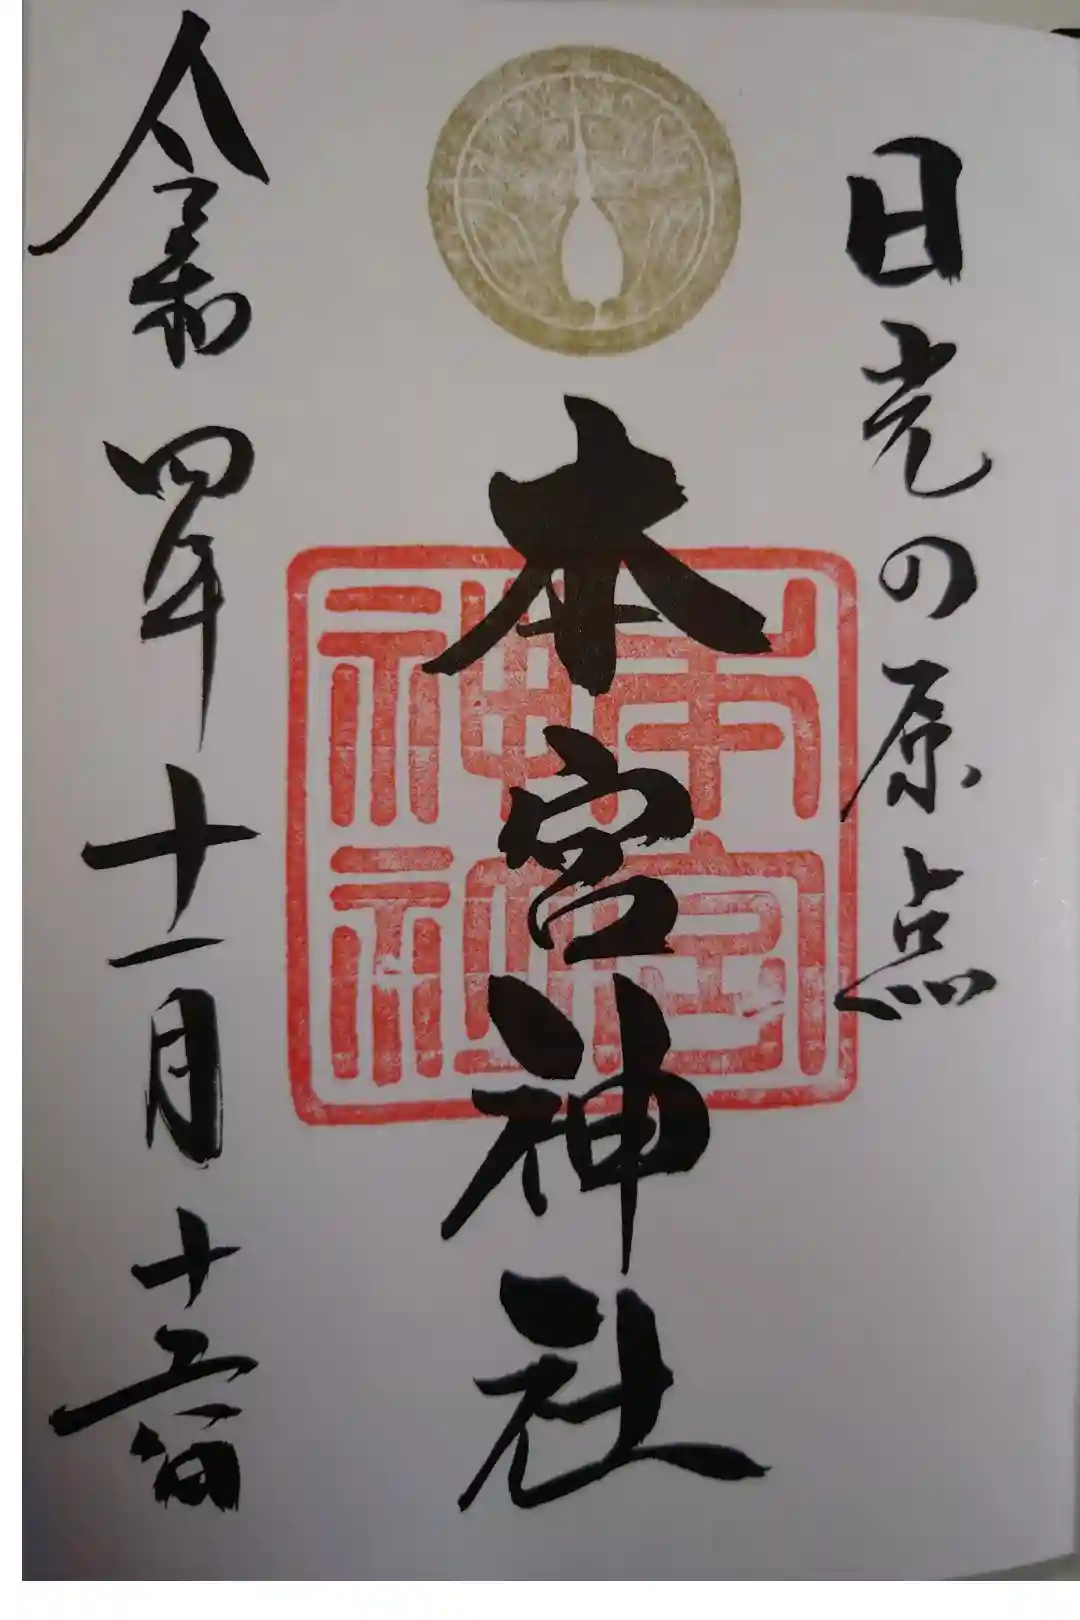 日光の原点
本宮神社
本宮神社
令和四年十一月十六日